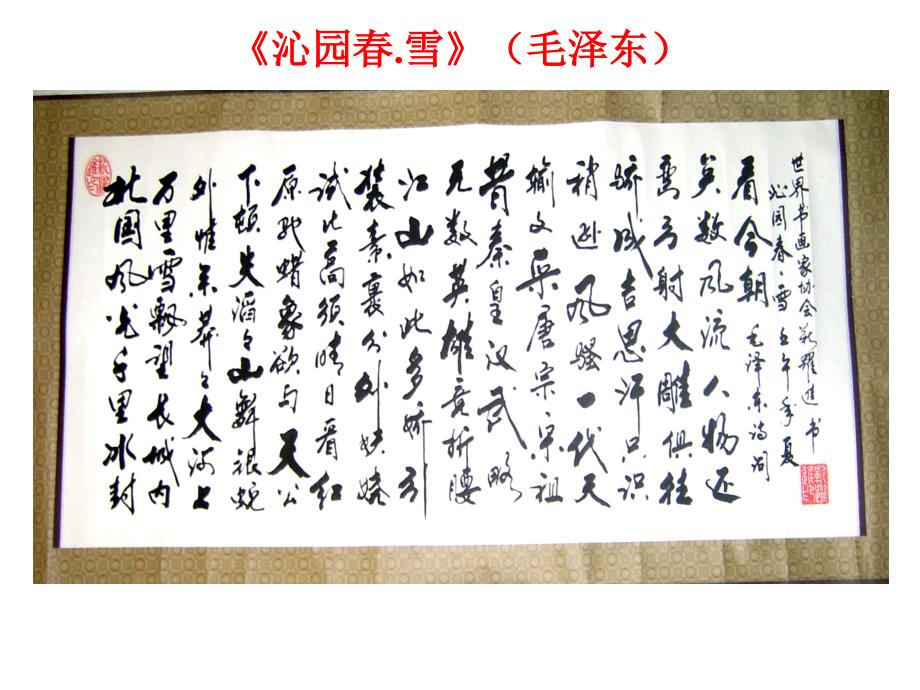 《沁园春.雪》（毛泽东）
北国风光千里冰封
万里雪飘望长城内
外惟余莽々大河上
下顿失滔々山舞银蛇
原驰蜡象欲与天公
试比高须晴日看红
装素裹分外妖娆
江山如此多娇引
无数英雄竞折腰
昔秦皇汉武略
输文采唐宗宋祖
稍逊风骚一代天
骄成吉思汗只识
弯弓射大雕俱往
矣数风流人物还
看今朝
毛泽东诗词
沁园春·雪 壬午年夏
世界书画家协会 书